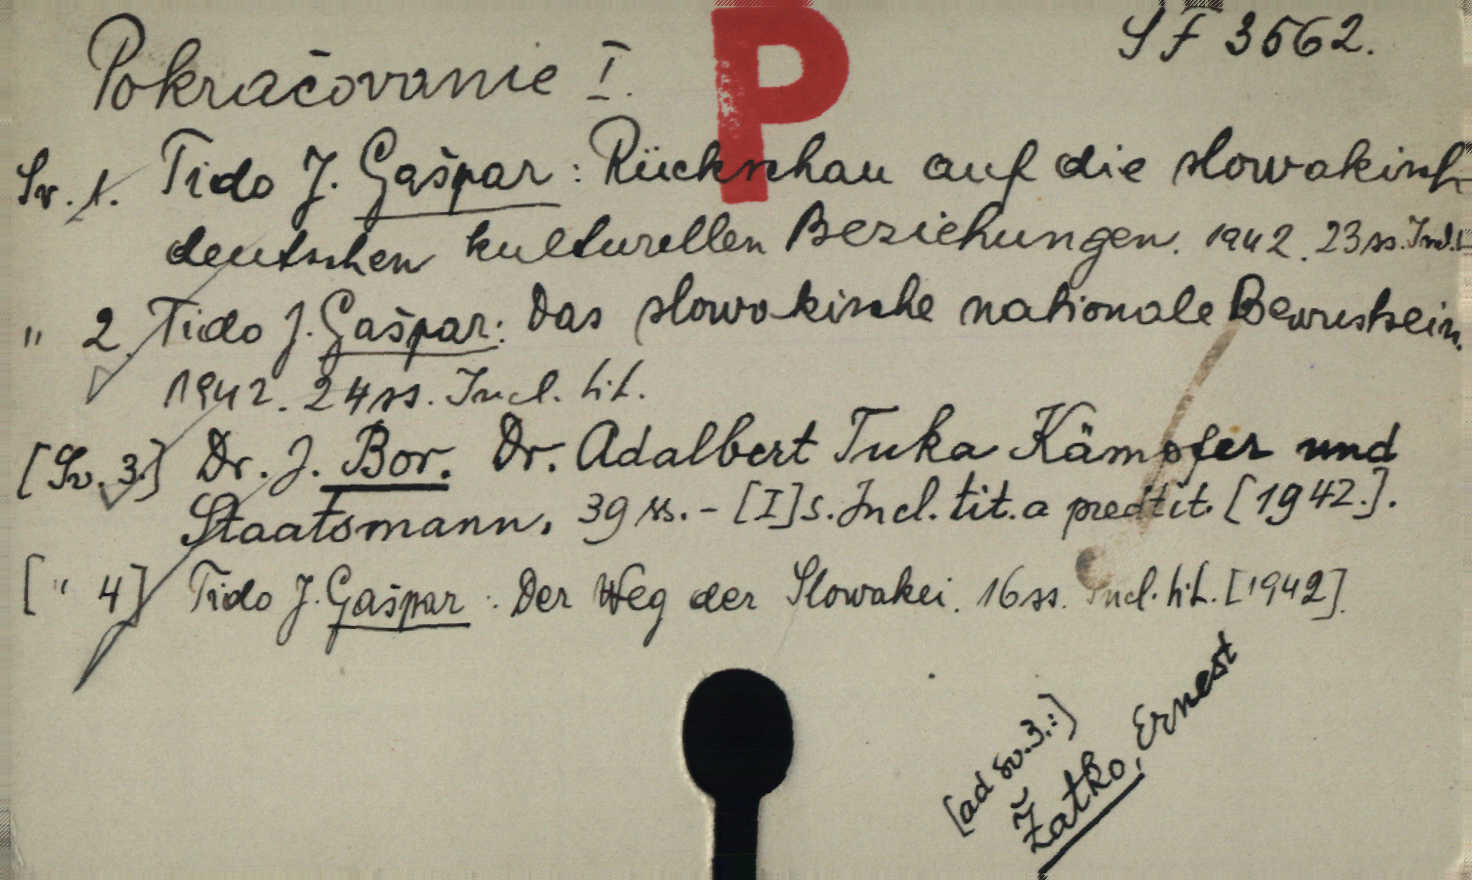 Pokračovanie I.
P
SF 3562.
Sv. 1. Tido J. Gašpar: Rückschau auf die slowakisch-
deutschen kulturellen Beziehungen. 1942. 23 ss. Incl.
" 2. Tido J. Gašpar: Das slowakische nationale Bewustsein.
1942. 24 ss. Incl. tit.
[Sv. 3.] Dr. J. Bor. Dr. Adalbert Tuka Kämpfer und
Staatsmann. 39 ss. - [I] s. Incl. tit. a predtit. [1942.].
[" 4] Tido J. Gašpar: Der Weg der Slowakei. 16 ss. Incl. tit. [1942].
[ad sv. 3.:]
Žatko, Ernest